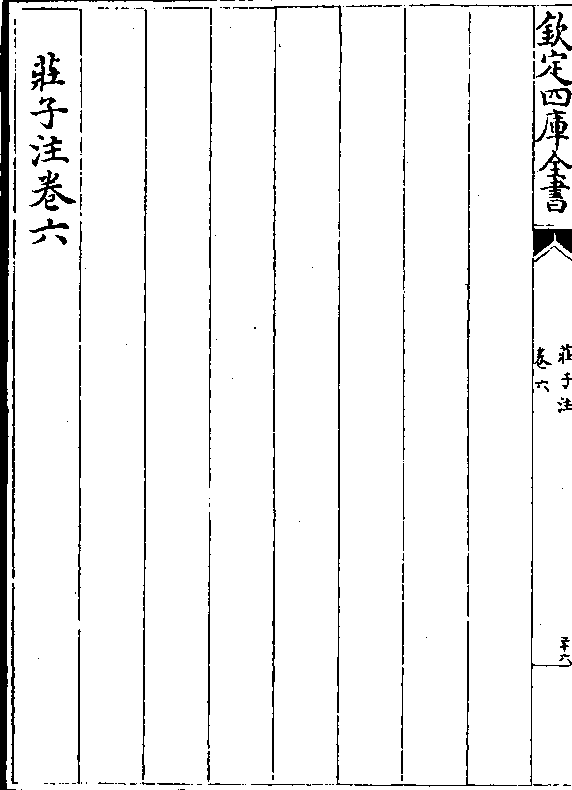 欽定四庫全書
莊子注
卷六
二十六
莊子注卷六